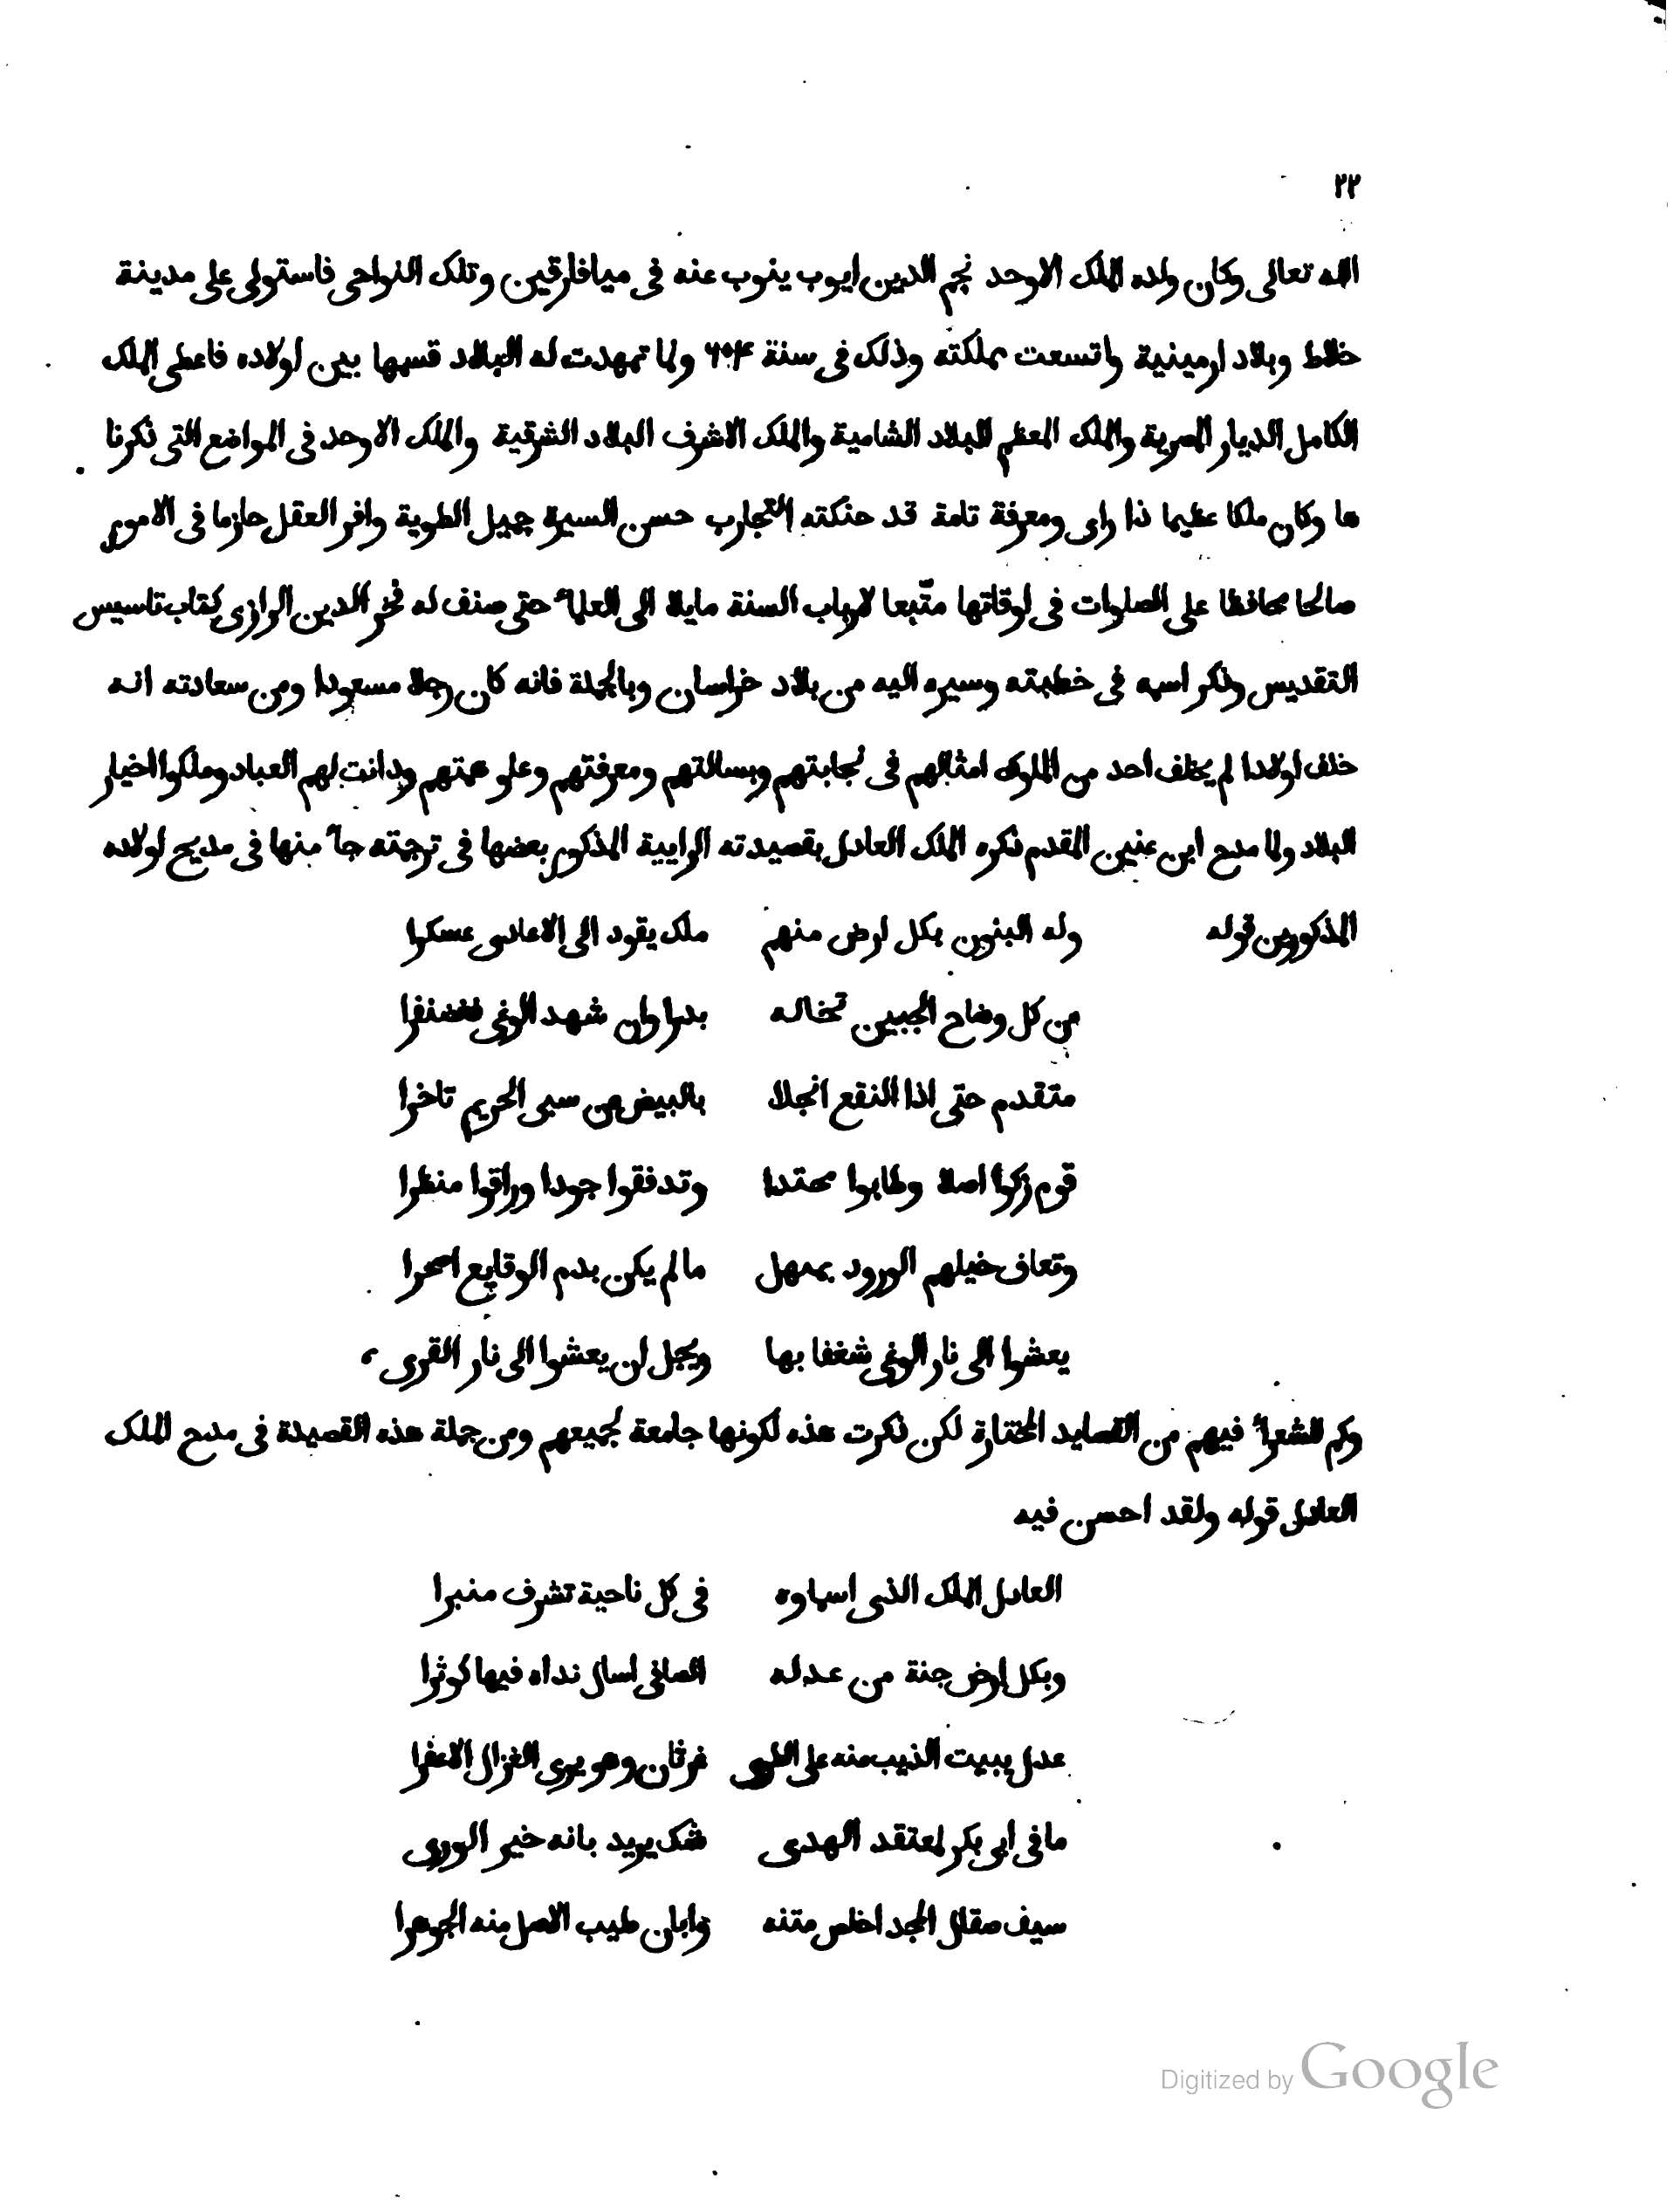 ٢٢
الله تعالى وكان ولده الملك الاوحد نجم الدين ايوب ينوب عنه فى ميافارقين وتلك النواحى فاستولى على مدينة
خلاط وبلاد ارمينية واتسعت مملكته وذلك فى سنة ٦٠٤ ولما تمهدت له البلاد قسمها بين اولاده فاعطى الملك
الكامل الديار المصرية والملك المعظم البلاد الشامية والملك الاشرف البلاد الشرقية والملك الاوحد فى المواضع التى ذكرنا
ها وكان ملكا عظيما ذا راى ومعرفة تامة قد حنكته التجارب حسن السيرة جميل الطوية وافر العقل حازما فى الامور
صالحا محافظا على الصلوات فى اوقاتها متّبعا لارباب السنة مايلا الى العلماء حتى صنف له فخر الدين الرازى كتاب تاسيس
التقديس وذكر اسمه فى خطبته وسيره اليه من بلاد خراسان وبالجملة فانه كان رجلا مسعودا ومن سعادته انه
خلف اولادا لم يخلف احد من الملوك امثالهم فى نجابتهم وبسالتهم ومعرفتهم وعلو همتهم ودانت لهم العباد وملكوا اخيار
البلاد ولما مدح ابن عنين المقدم ذكره الملك العادل بقصيدته الرايية المذكور بعضها فى ترجمته جاء منها فى مديح اولاده
المذكورين قوله وله البنون بكل ارض منهم ملك يقود الى الاعادى عسكرا
من كل وضاح الجبين تخاله بدرا وان شهد الوغى فغضنفرا
متقدم حتى اذا النقع انجلا بالبيض عن سبى الحريم تاخرا
قوم زكوا اصلا وطابوا محتدا وتدفقوا جودا وراقوا منظرا
وتعاف خيلهم الورود بمنهل مالم يكن بدم الوقايع احمرا
يعشوا الى نار الوغى شغفا بها ويجل ان يعشوا الى نار القرى
وكم للشعراء فيهم من القصايد المختارة لكن ذكرت هذه لكونها جامعة لجميعهم ومن جملة هذه القصيدة فى مدح الملك
العادل قوله ولقد احسن فيه
العادل الملك الذى اسماوه فى كل ناحية تشرف منبرا
وبكل ارض جنة من عدله الصافى اسال نداه فيها كوثرا
عدل يبيت الذيب منه على الطوى غرثان وهو يرى الغزال الاعفرا
مافى ابى بكر لمعتقد الهدى شك يريد بانه خير الورى
سيف صقال المجد اخلص متنه وابان طيب الاصل منه الجوهرا
Digitized by Google